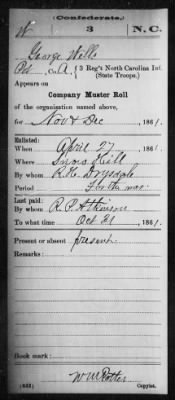 (Confederate.)
W 3 N.C.
George Wells
Pvt, Co. A, { 3 Reg't North Carolina Inf.
(State Troops.)
Appears on
Company Muster Roll
of the organization named above,
for Nov & Dec, 1861.
Enlisted:
When April 27, 1861.
Where Snow Hill
By whom R. H. Drysdale
Period For the war.
Last paid:
By whom R. P. Atkinson
To what time Oct 31, 1861.
Present or absent present
Remarks:
Book mark:
W M Potter
(642) Copyist.